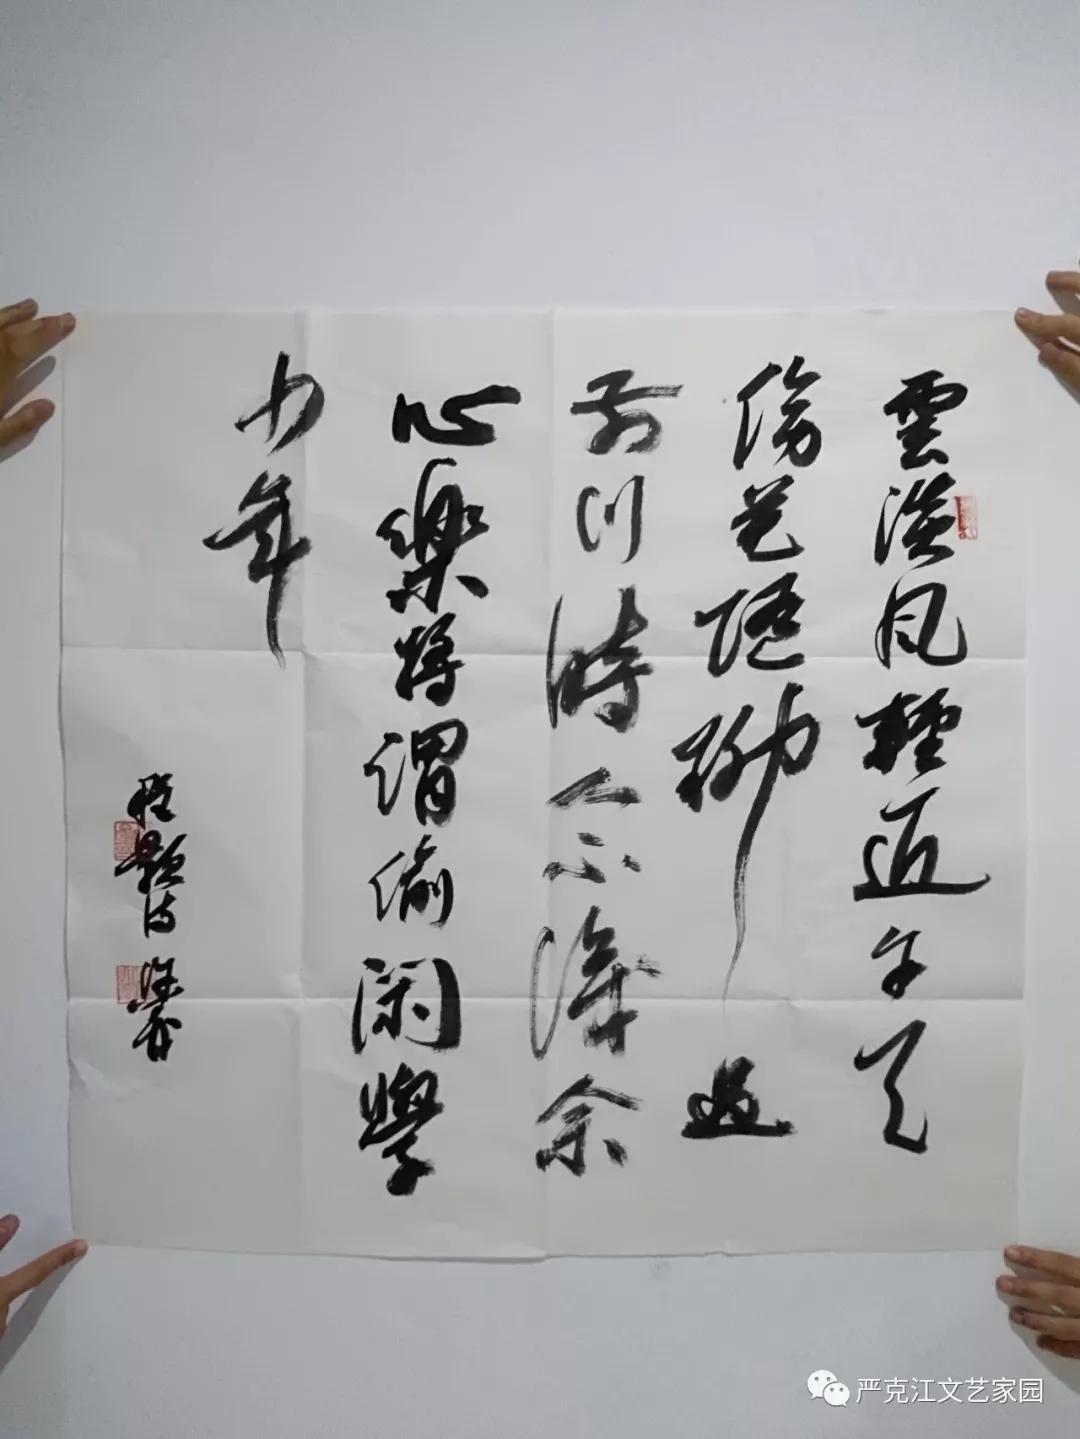 雲淡風輕近午天
傍花随柳過
前川時人不識余
心樂將謂偷閑學
少年
程顥詩
严克江文艺家园